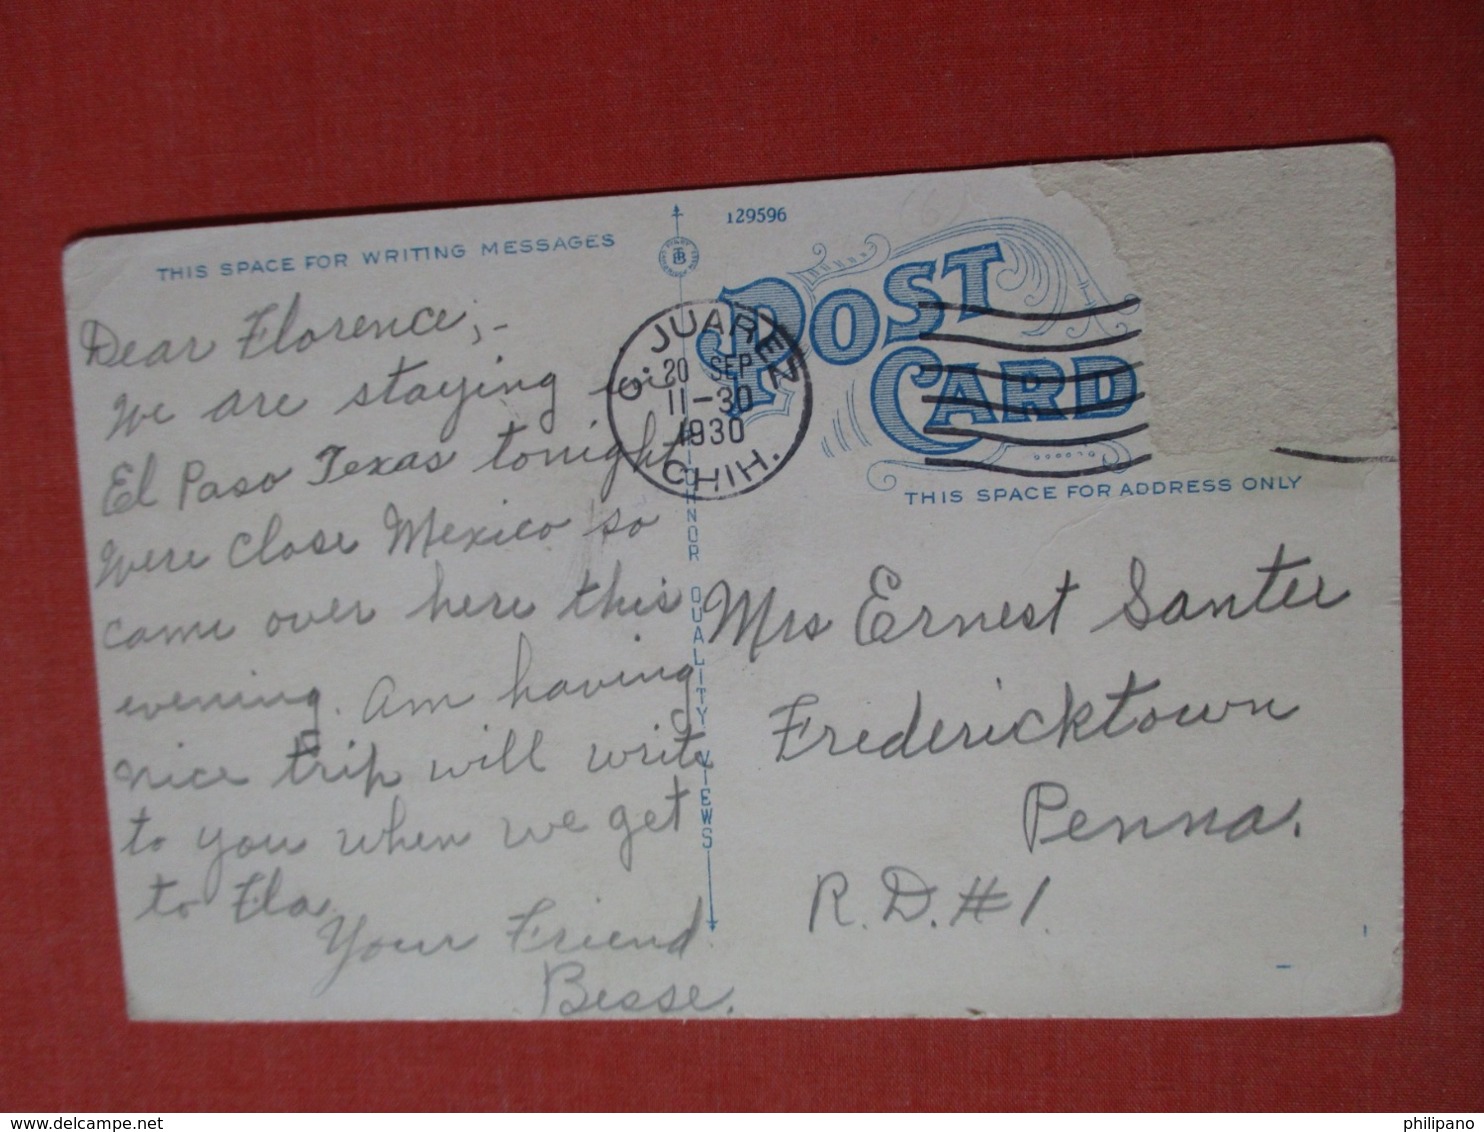 THIS SPACE FOR WRITING MESSAGES
Dear Florence,-
We are staying in
El Paso Texas tonight
Were close Mexico so
came over here this
evening. Am having
nice trip will write
to you when we get
to Fla.
Your Friend
Besse.
129596
POST
CARD
C. JUAREZ
20 SEP
11-30
1930
CHIH.
THIS SPACE FOR ADDRESS ONLY
QUALITY VIEWS
Mrs Ernest Santee
Fredericktown
Penna.
R.D.#1
www.delcampe.net
philipano